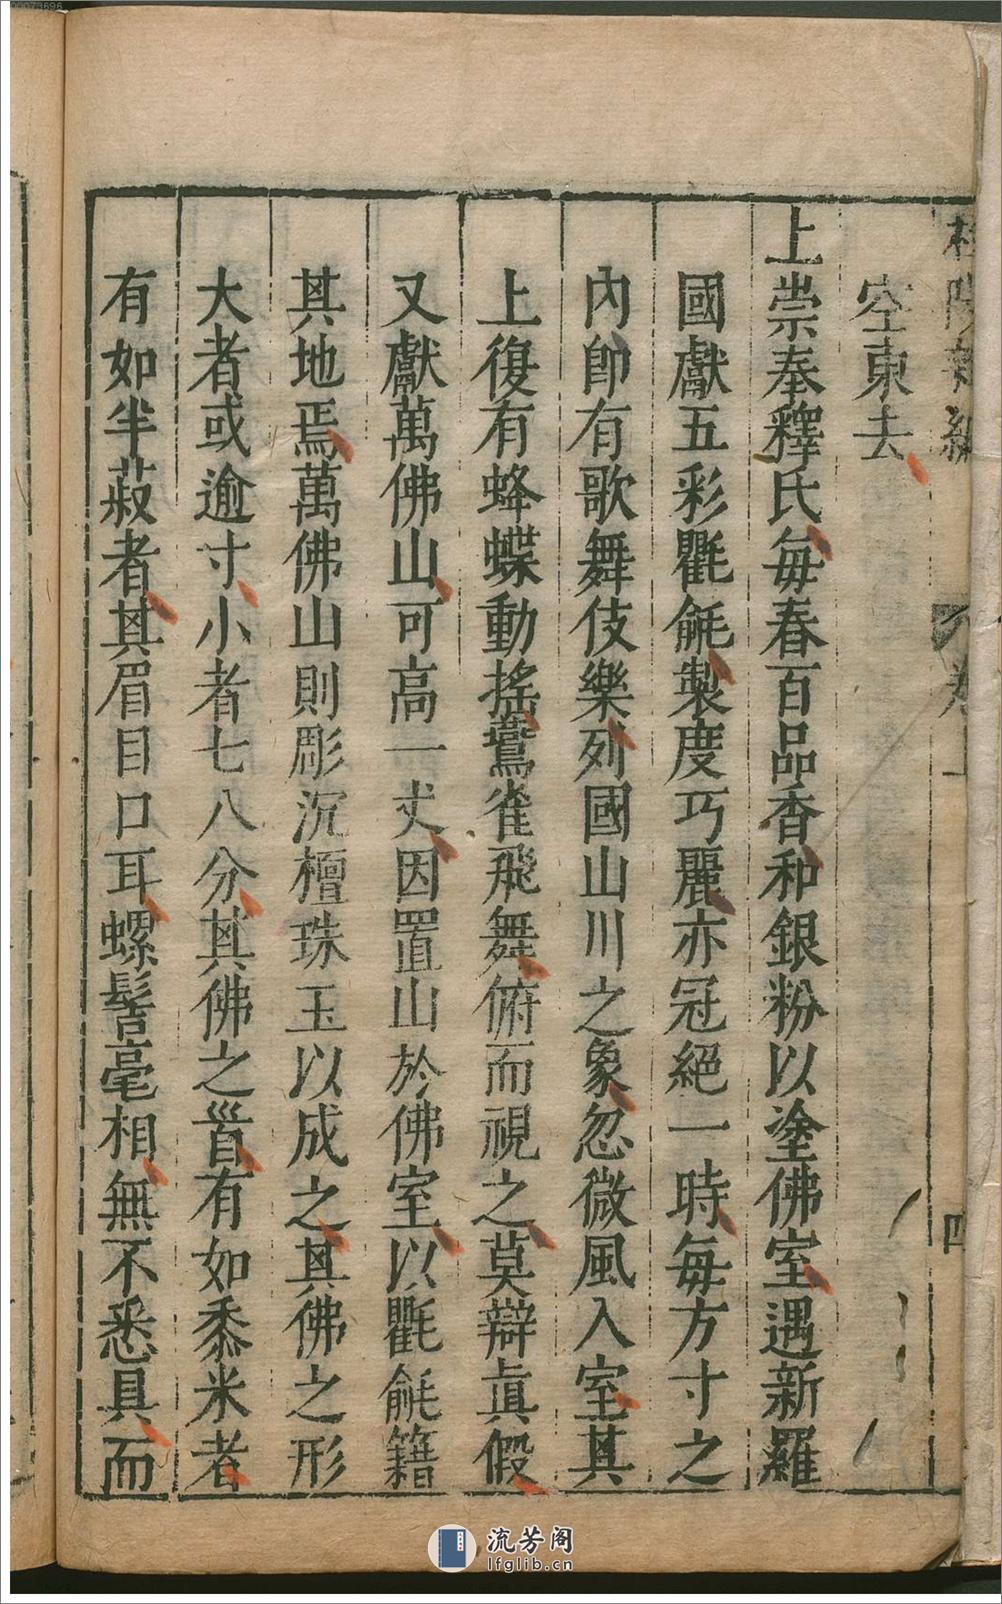 空東去
上崇奉釋氏每春百品香和銀粉以塗佛室遇新羅
國獻五彩氍毹製度巧麗亦冠絕一時每方寸之
內卽有歌舞伎樂列國山川之象忽微風入室其
上復有蜂蝶動搖鷰雀飛舞俯而視之莫辯眞假
又獻萬佛山可高一丈因置山於佛室以氍毹籍
其地焉萬佛山則彫沉檀珠玉以成之其佛之形
大者或逾寸小者七八分其佛之首有如黍米者
有如半菽者其眉目口耳螺髻毫相無不悉具而
流芳阁
lfglib.cn